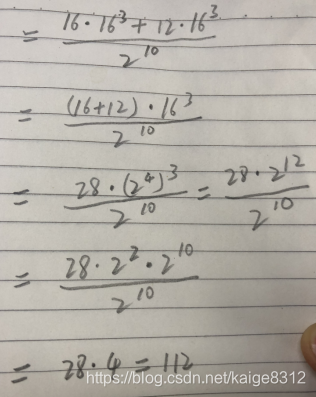 = (16·16³+12·16³)/2¹⁰
= ((16+12)·16³)/2¹⁰
= (28·(2⁴)³)/2¹⁰ = (28·2¹²)/2¹⁰
= (28·2²·2¹⁰)/2¹⁰
= 28·4=112
https://blog.csdn.net/kaige8312